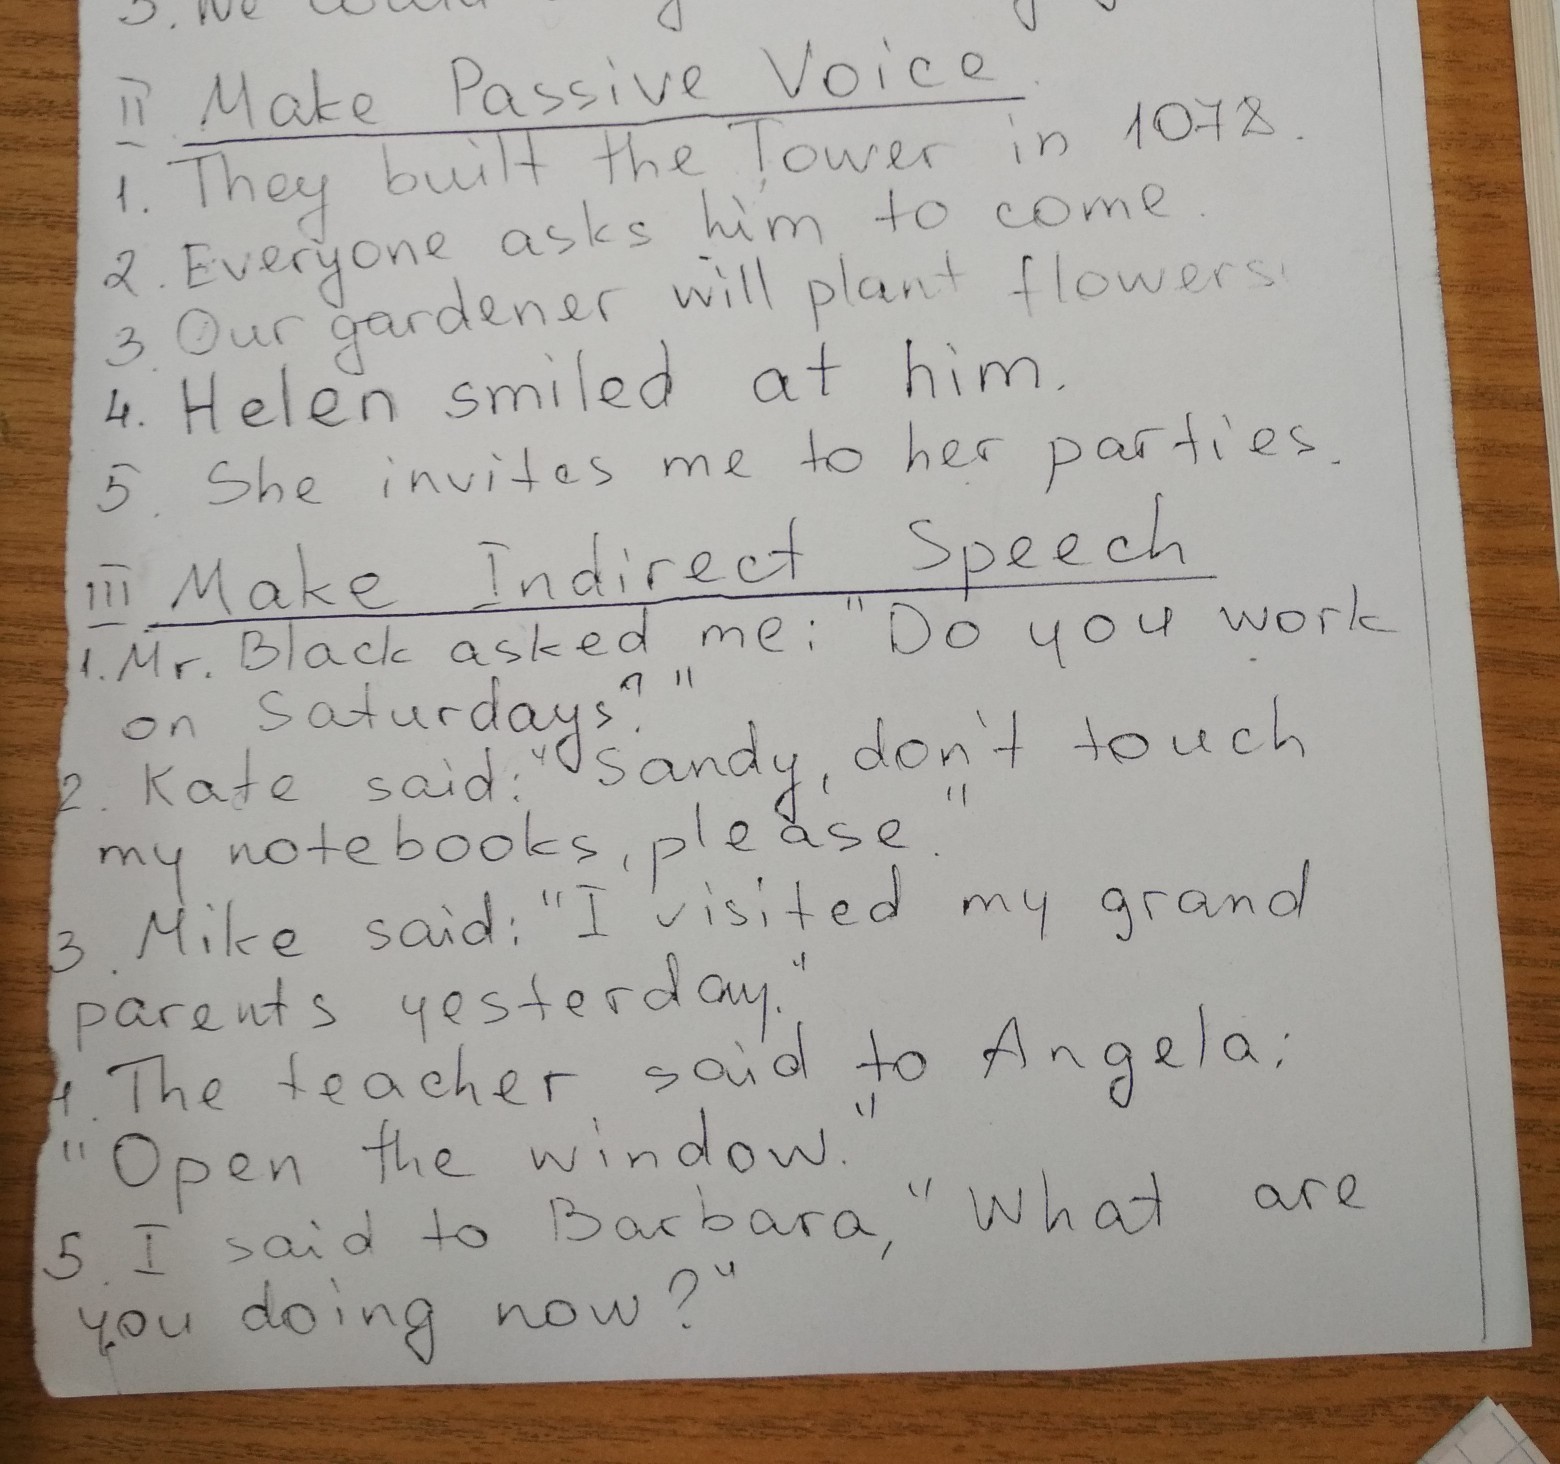 5. We could
II Make Passive Voice.
1. They built the Tower in 1078.
2. Everyone asks him to come.
3. Our gardener will plant flowers.
4. Helen smiled at him.
5. She invites me to her parties.
III Make Indirect Speech
1. Mr. Black asked me: "Do you work
on Saturdays?"
2. Kate said: "Sandy, don't touch
my notebooks, please."
3. Mike said: "I visited my grand
parents yesterday."
4. The teacher said to Angela:
"Open the window."
5. I said to Barbara, "What are
you doing now?"